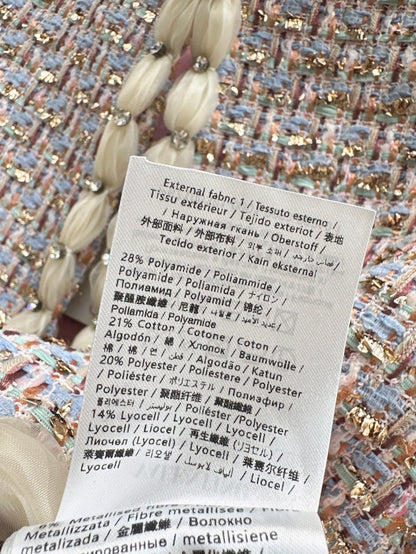 External fabric 1 / Tessuto esterno /
Tissu extérieur / Tejido exterior / 表地
/ Наружная ткань / Oberstoff /
外部面料 / 外部布料 / 외부 소재 / قماش خارجي /
Tecido exterior / Kain eksternal
28% Polyamide / Poliammide /
Polyamide / Poliamida / ナイロン /
Полиамид / Polyamid / 锦纶 /
聚醯胺纖維 / 尼龍 /
Poliamida / Polyamide
21% Cotton / Cotone / Coton /
Algodón / 綿 / Хлопок / Baumwolle /
棉 / 棉 / 면 / قطن / Algodão / Katun
20% Polyester / Poliestere / Polyester
/ Poliéster / ポリエステル / Полиэфир /
Polyester / 聚酯纤维 / 聚酯纖維 /
폴리에스터 / بوليستر / Poliéster / Polyester
14% Lyocell / Lyocell / Lyocell /
Lyocell / Liocel / 再生繊維 (リヨセル) /
Лиочел (Lyocell) / Lyocell / 莱赛尔纤维 /
萊賽爾纖維 / 리오셀 / ألياف لايوسل / Liocel /
Lyocell
6% Metallised fibre
Metallizzata / Fibre métallisée / Fibra
metalizada / 金属繊維 / Волокно
/ metallisiene